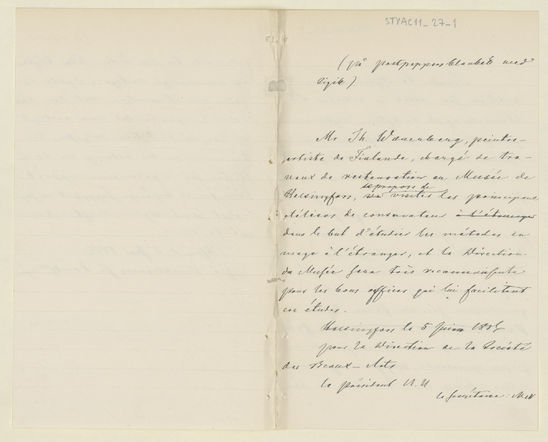 STYAC11_27-1
(på postpappersblankett med
sigill).
Mr Th. Waenerberg, peintre-
artiste de Finlande, chargé de tra-
vaux de restauration au Musée de
Helsingfors, se propose de visiter les principaux
ateliers de conservateur à l'étranger
dans le but d'étudier les métodes en
usage à l'étranger, et la Direction
du Musée sera très reconnaissante
pour les bons offices qui lui facilitent
ces études.
Helsingfors le 5 juin
pour la Direction de la Société
des Beaux-Arts
le président N.N
le secrétaire N.N